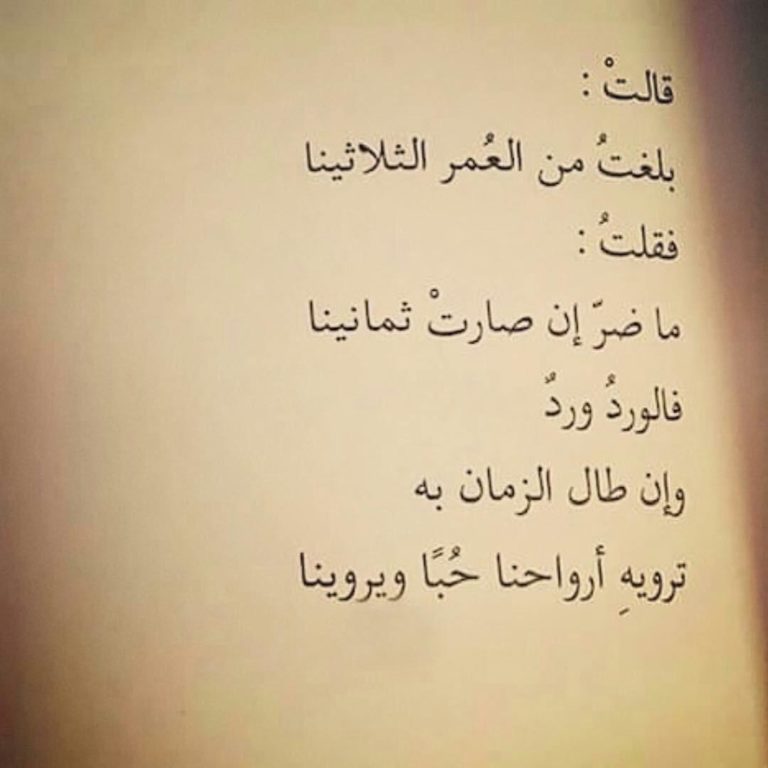 قالتْ :
بلغتُ من العُمر الثلاثينا
فقلتُ :
ما ضرّ إن صارتْ ثمانينا
فالوردُ وردٌ
وإن طال الزمان به
ترويهِ أرواحنا حُبًا ويروينا